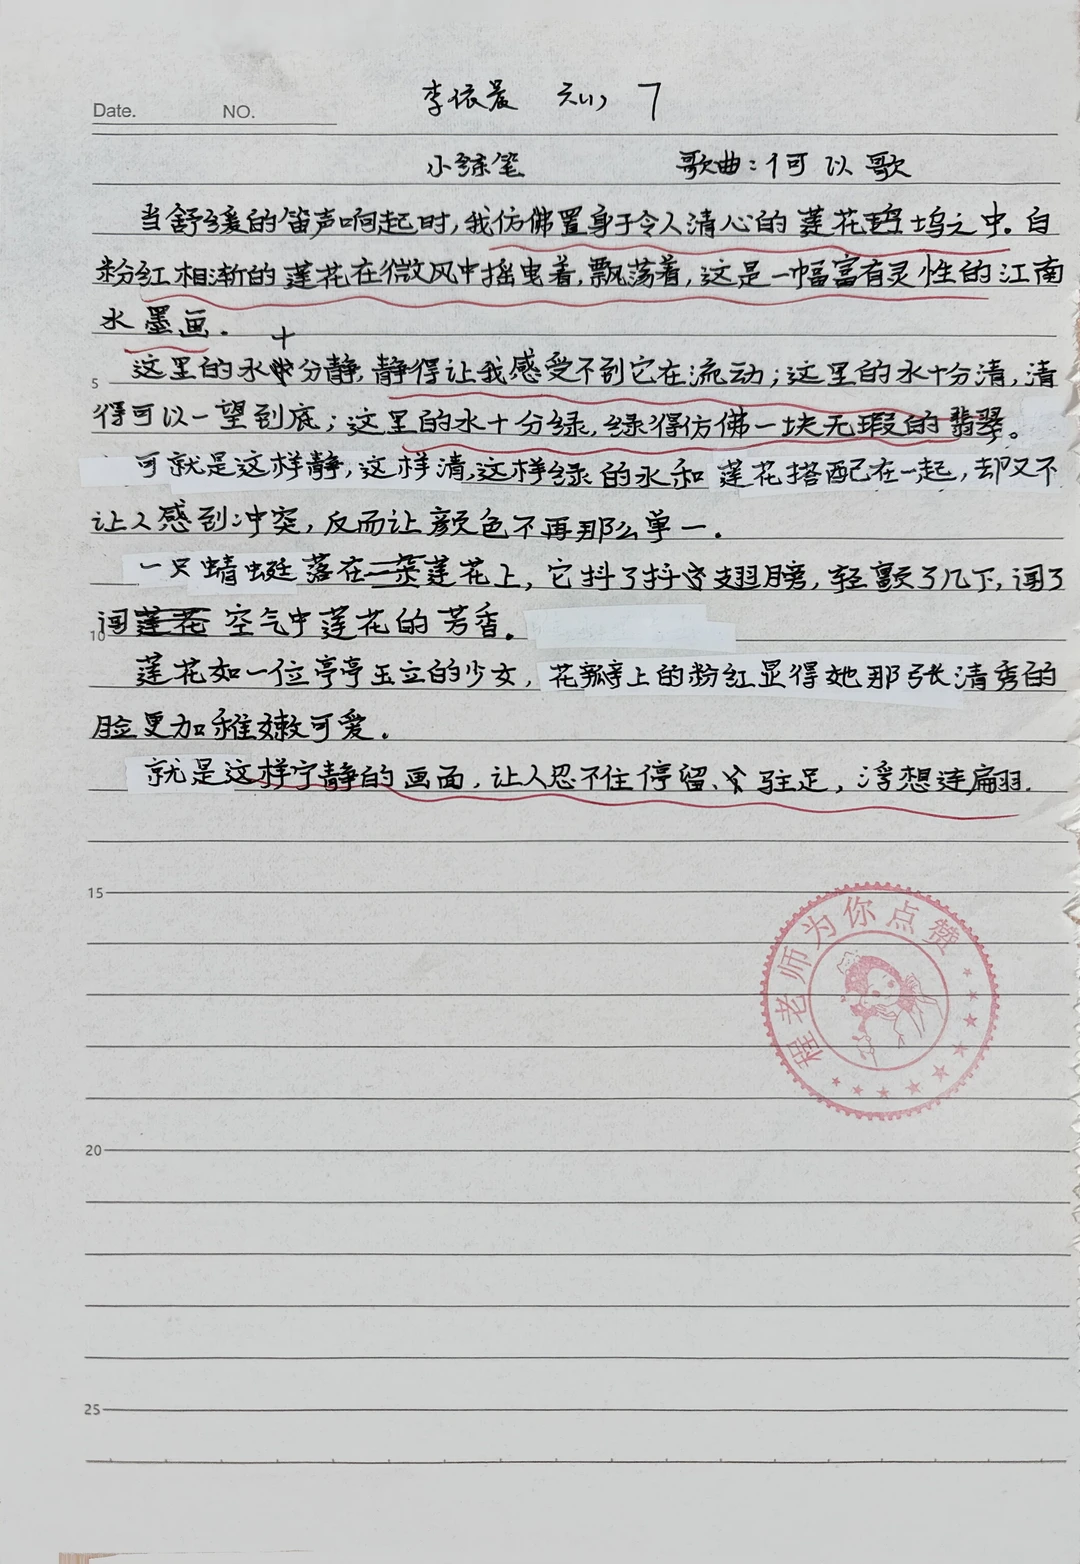 Date. NO. 李依晨 7
小练笔 歌曲:何以歌
当舒缓的笛声响起时,我仿佛置身于令人清心的莲花坞之中.白
粉红相渐的莲花在微风中摇曳着,飘荡着,这是一幅富有灵性的江南
水墨画.
5 这里的水十分静,静得让我感受不到它在流动;这里的水十分清,清
得可以一望到底;这里的水十分绿,绿得仿佛一块无瑕的翡翠。
可就是这样静,这样清,这样绿的水和莲花搭配在一起,却又不
让人感到冲突,反而让颜色不再那么单一.
一只蜻蜓落在莲花上,它抖了抖翅膀,轻颤了几下,闻了
10 闻空气中莲花的芳香.
莲花如一位亭亭玉立的少女,花瓣上的粉红显得她那张清秀的
脸更加稚嫩可爱.
就是这样宁静的画面,让人忍不住停留、驻足,浮想连扁羽.
15
程老师为你点赞
20
25